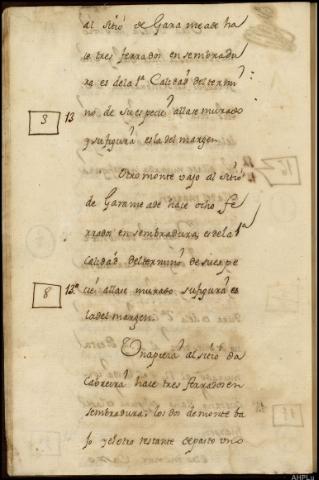 al Sitió de Garameade ha
ce tres ferrados en sembradu
ra es de la 1ª Calidad del termi
nó de su especie allase murado
3 13 y su figura es la del margen
Otro monte vajo al Sitió
de Garameade hace ocho fe
rrados en sembradura, es de la 1ª
Calidad del terminó de su espe
8 13ª cie allase murado su figura es
la del margen
Una pieza al sitio da
Cabreira hace tres ferrados en
sembradura; los dos de monte ba
jo y el otro restante de pasto uno
AHPLu